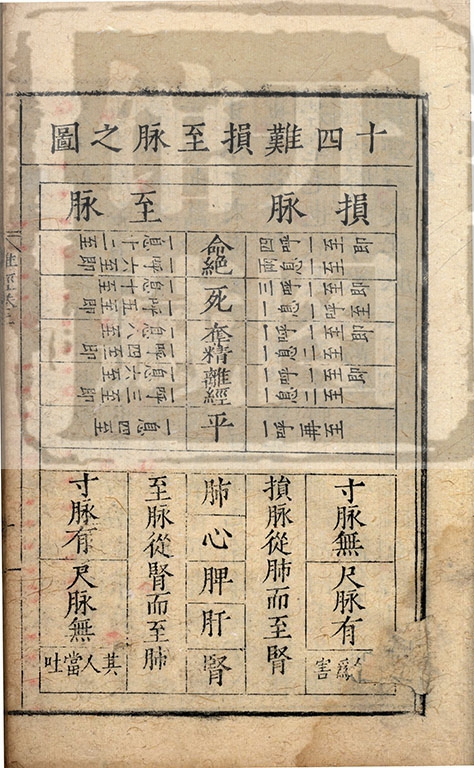 十四難損至脉之圖
損脉
四呼一至即
兩息一至
一呼一至即
一息二至
一呼再至
命絶
死
奪精
離經
平
至脉
一呼六至即
一息十二至
一呼五至即
一息十至
一呼四至即
一息八至
一呼三至即
一息六至
一息四至
寸脉無
尺脉有
人爲害
損脉從肺而至腎
肺
心
脾
肝
腎
至脉從腎而至肺
寸脉有
尺脉無
其人當吐